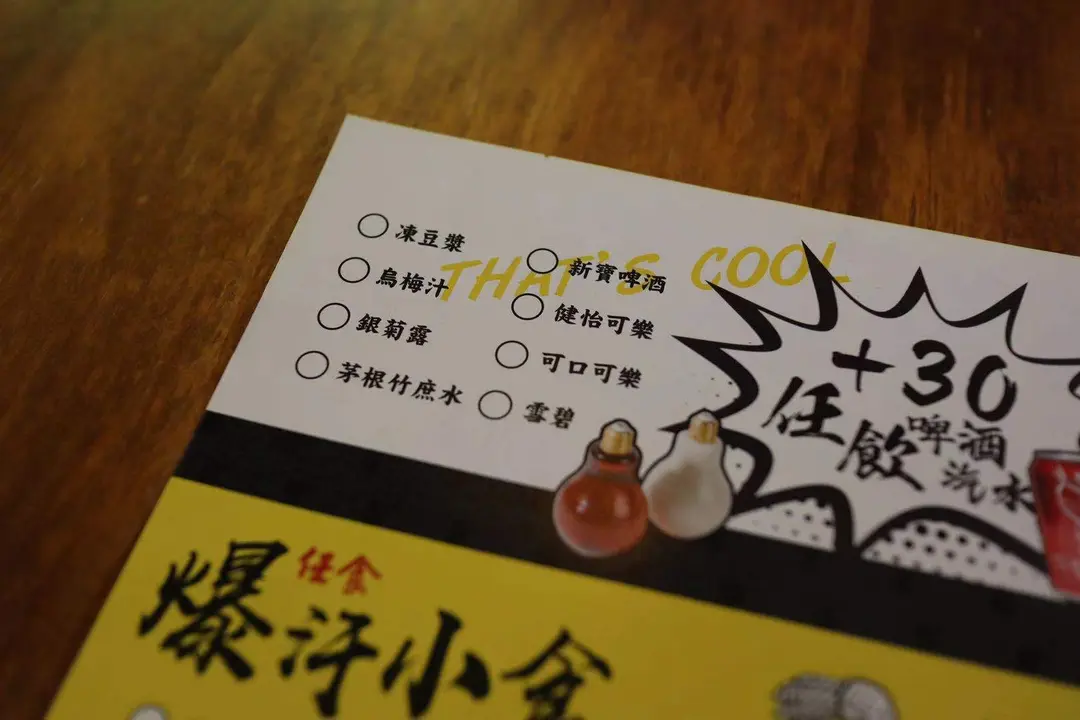 THAT'S COOL
凍豆漿
烏梅汁
銀菊露
茅根竹庶水
新寶啤酒
健怡可樂
可口可樂
雪碧
+30
任飲
啤酒
汽水
爆汗小食
任食